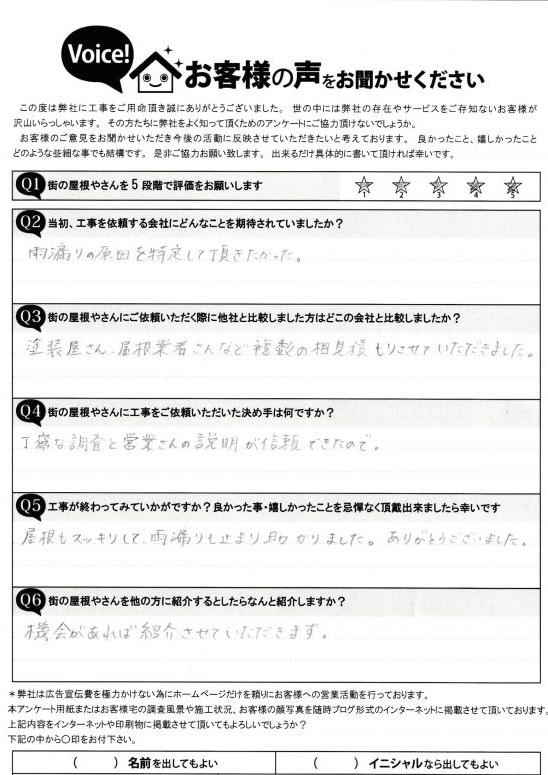 Voice!
お客様の声をお聞かせください
この度は弊社に工事をご用命頂き誠にありがとうございました。 世の中には弊社の存在やサービスをご存知ないお客様が
沢山いらっしゃいます。 その方たちに弊社をよく知って頂くためのアンケートにご協力頂けないでしょうか。
お客様のご意見をお聞かせいただき今後の活動に反映させていただきたいと考えております。 良かったこと、嬉しかったこと
どのような些細な事でも結構です。 是非ご協力お願い致します。 出来るだけ具体的に書いて頂ければ幸いです。
Q1 街の屋根やさんを5段階で評価をお願いします 1 2 3 4 5
Q2 当初、工事を依頼する会社にどんなことを期待されていましたか？
雨漏りの原因を特定して頂きたかった。
Q3 街の屋根やさんにご依頼いただく際に他社と比較しました方はどこの会社と比較しましたか？
塗装屋さん、屋根業者さんなど複数の相見積もりさせていただきました。
Q4 街の屋根やさんに工事をご依頼いただいた決め手は何ですか？
丁寧な調査と営業さんの説明が信頼できたので。
Q5 工事が終わってみていかがですか？良かった事・嬉しかったことを忌憚なく頂戴出来ましたら幸いです
屋根もスッキリして、雨漏りも止まり助かりました。ありがとうございました。
Q6 街の屋根やさんを他の方に紹介するとしたらなんと紹介しますか？
機会があれば紹介させていただきます。
＊弊社は広告宣伝費を極力かけない為にホームページだけを頼りにお客様への営業活動を行っております。
本アンケート用紙またはお客様宅の調査風景や施工状況、お客様の顔写真を随時ブログ形式のインターネットに掲載させて頂いております。
上記内容をインターネットや印刷物に掲載させて頂いてもよろしいでしょうか？
下記の中から〇印をお付下さい。
（　　）名前を出してもよい （　　）イニシャルなら出してもよい